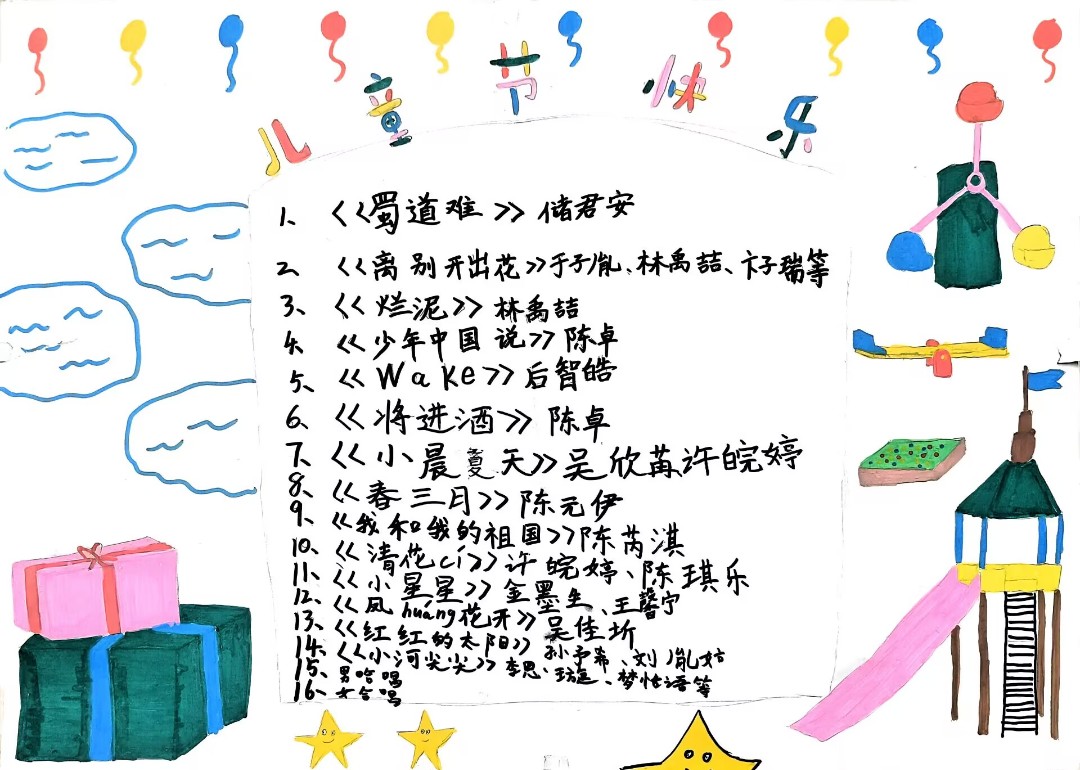 儿童节快乐
1、《蜀道难》储君安
2、《离别开出花》于子胤、林禹喆、卞子瑞等
3、《烂泥》林禹喆
4、《少年中国说》陈卓
5、《Wake》后智皓
6、《将进酒》陈卓
7、《小晨夏天》吴欣苒许皖婷
8、《春三月》陈元伊
9、《我和我的祖国》陈芮淇
10、《清花cí》许皖婷、陈琪乐
11、《小星星》金墨生、王馨宁
12、《凤huáng花开》吴佳圻
13、《红红的太阳》孙予希、刘胤姑
14、《小河尖尖》李思、梦怡语等
15、男哈唱
16、女合唱